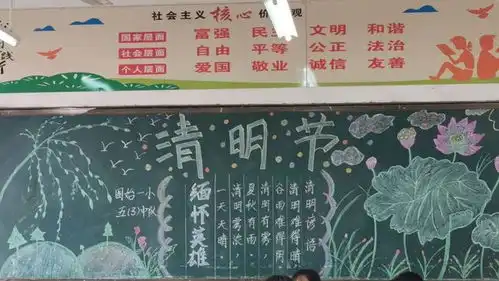 社会主义核心价观
国家层面 富强 民主 文明 和谐
社会层面 自由 平等 公正 法治
个人层面 爱国 敬业 诚信 友善
清明节
固始一小
五(3)中队
清明谚语
清明难得晴,
谷雨难得阴
清明有雾,
夏秋有雨。
清明雾浓,
一天天晴。
缅怀英雄